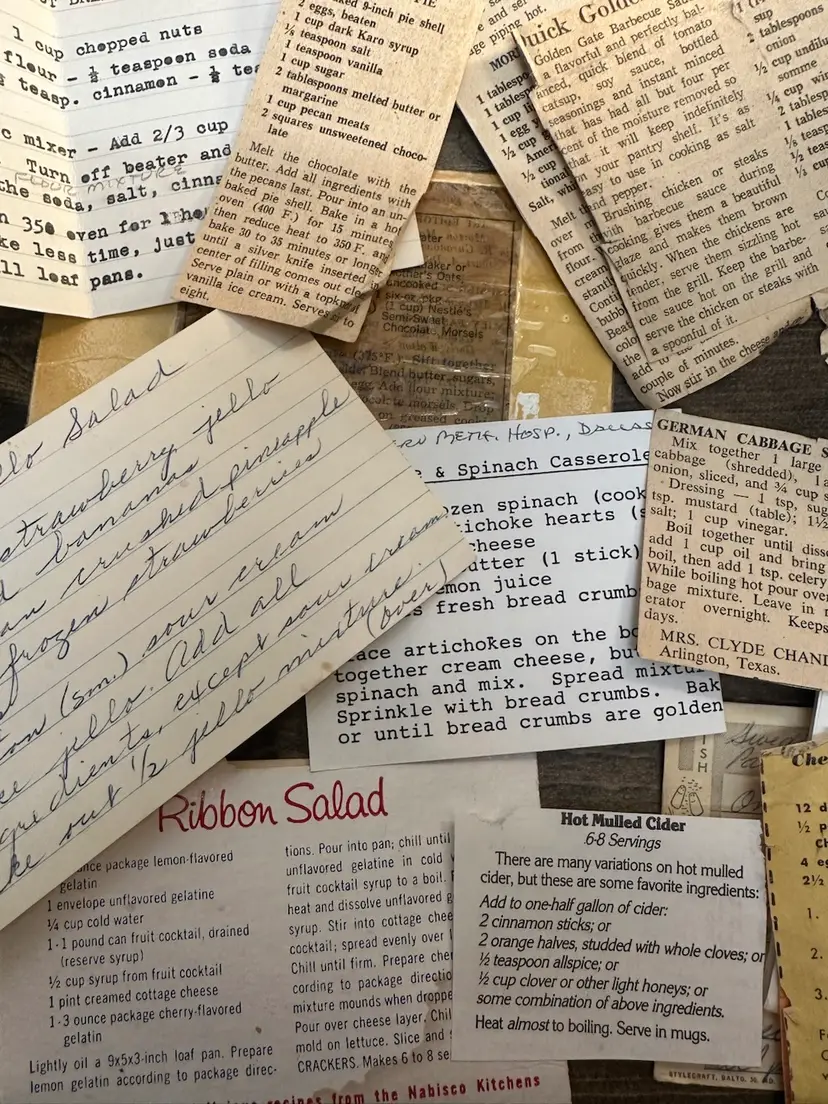 1 cup chopped nuts
flour - ½ teaspoon soda
teasp. cinnamon - ½ tea
c mixer - Add 2/3 cup
Turn off beater and
FLOUR MIXTURE
the soda, salt, cinna
350 oven for 1 ho
ke less time, just
ll loaf pans.
9-inch pie shell
2 eggs, beaten
1 cup dark Karo syrup
⅛ teaspoon salt
1 teaspoon vanilla
1 cup sugar
2 tablespoons melted butter or
margarine
1 cup pecan meats
2 squares unsweetened choco-
late
Melt the chocolate with the
butter. Add all ingredients with
the pecans last. Pour into an un-
baked pie shell. Bake in a hot
oven (400 F.) for 15 minutes
then reduce heat to 350 F. and
bake 30 to 35 minutes or longer
until a silver knife inserted in
center of filling comes out cle
Serve plain or with a topkn
vanilla ice cream. Serves to
eight.
piping hot.
MOR
1 tablespo
1 tablesp
1 cup li
1 egg y
½ cup g
Amer
tional
Salt, wh
Melt
over
from
flour-
cream
stant
Conti
bubb
Beat
colo
the
add to the
couple of minutes.
Now stir in the cheese and
uick Golde
Golden Gate Barbecue Sau
a flavorful and perfectly bal-
anced, quick blend of tomato
catsup, soy sauce, bottled
seasonings and instant minced
that has had all but four per
cent of the moisture removed so
that it will keep indefinitely
on your pantry shelf. It's as
easy to use in cooking as salt
and pepper.
Brushing chicken or steaks
with barbecue sauce during
cooking gives them a beautiful
glaze and makes them brown
quickly. When the chickens are
tender, serve them sizzling hot
from the grill. Keep the barbe-
cue sauce hot on the grill and
serve the chicken or steaks with
a spoonful of it.
sup
2 tablespoons
onion
½ cup undilu
somme
¼ cup wi
2 tablesp
1 tables
⅛ teasp
½ teas
Oats,
uncooked
Nestle's
Semi-Sweet
Chocolate Morsels
(375°F.) Sift together
Blend butter, sugars,
egg. Add flour mixture;
chocolate morsels. Drop
on greased
llo Salad
strawberry jello
bananas
an crushed pineapple
frozen strawberries
(sm.) sour cream
jello. Add all
ingredients, except sour cream
ke out ½ jello mixture.
(over)
METH. HOSP., DALLAS
& Spinach Casserole
ozen spinach (cook
tichoke hearts (
cheese
utter (1 stick)
emon juice
s fresh bread crumb
lace artichokes on the bo
together cream cheese, bu
spinach and mix. Spread mixtu
Sprinkle with bread crumbs. Bak
or until bread crumbs are golden
GERMAN CABBAGE S
Mix together 1 large
cabbage (shredded), 1
onion, sliced, and ¾ cup s
Dressing — 1 tsp, sug
tsp. mustard (table); 1½
salt; 1 cup vinegar.
Boil together until disso
add 1 cup oil and bring
boil, then add 1 tsp. celery
While boiling hot pour over
bage mixture. Leave in r
erator overnight. Keeps
days.
MRS. CLYDE CHAND
Arlington, Texas.
Ribbon Salad
ounce package lemon-flavored
gelatin
1 envelope unflavored gelatine
¼ cup cold water
1-1 pound can fruit cocktail, drained
(reserve syrup)
½ cup syrup from fruit cocktail
1 pint creamed cottage cheese
1-3 ounce package cherry-flavored
gelatin
Lightly oil a 9x5x3-inch loaf pan. Prepare
lemon gelatin according to package direc-
tions. Pour into pan; chill until
unflavored gelatine in cold
fruit cocktail syrup to a boil.
heat and dissolve unflavored g
syrup. Stir into cottage chee
cocktail; spread evenly over
Chill until firm. Prepare che
cording to package directio
mixture mounds when droppe
Pour over cheese layer. Chil
mold on lettuce. Slice and
CRACKERS. Makes 6 to 8 se
recipes from the Nabisco Kitchens
Hot Mulled Cider
6-8 Servings
There are many variations on hot mulled
cider, but these are some favorite ingredients:
Add to one-half gallon of cider:
2 cinnamon sticks; or
2 orange halves, studded with whole cloves; or
½ teaspoon allspice; or
½ cup clover or other light honeys; or
some combination of above ingredients.
Heat almost to boiling. Serve in mugs.
ISH
STYLECRAFT, BALTO. 30, MD.
Che
12 d
½ p
Ch
4 eg
2½
1.
2.
3.